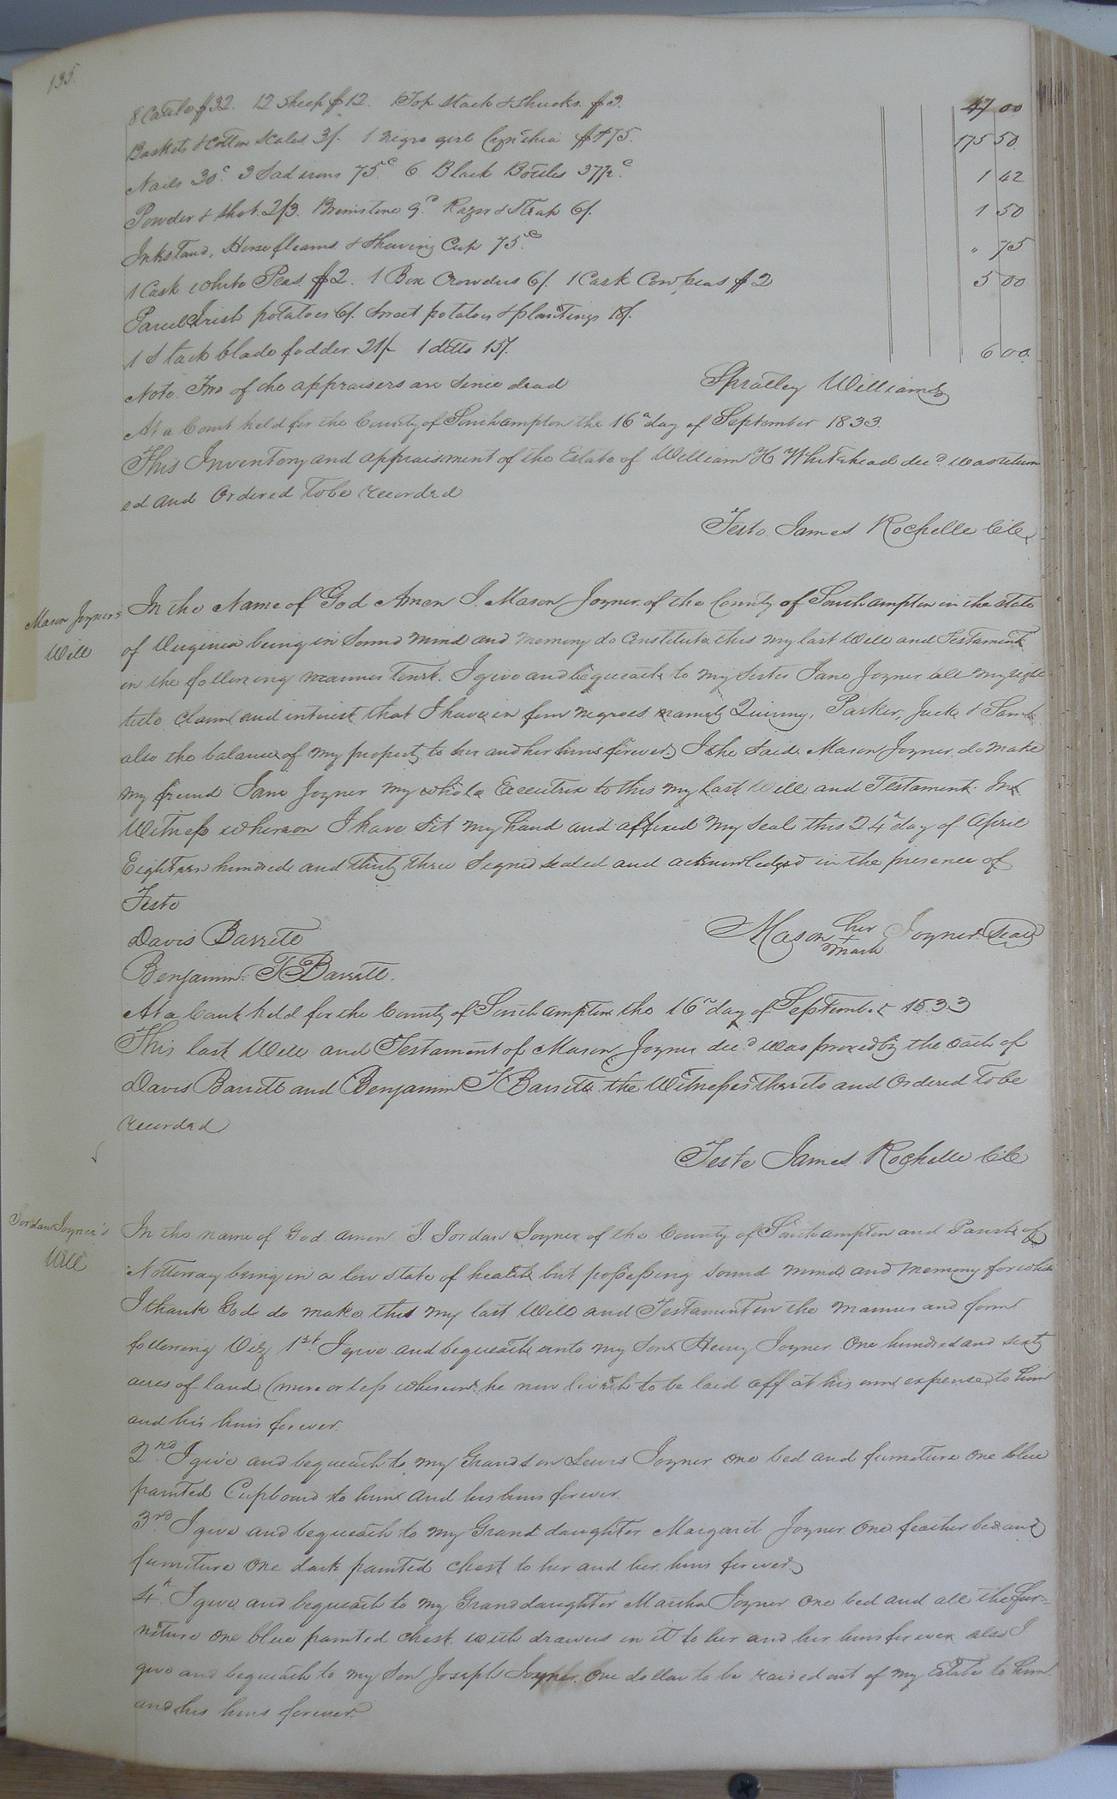 135.
8 Cattle $32. 12 Sheep $12. Top Stack & Shucks $3. 47 00
Baskets & Cotton Scales 3/. 1 negro girl Cynthia $175. 175 50
Nails 30c 3 Sad irons 75c 6 Black Bottles 37½c 1 42
Powder & Shot 2/3. Brimstone 9d Razor & Strap 6/. 1 50
Inkstand, Horse fleams & Shaving Cup 75c " 75
1 Cask white Peas $2. 1 Box Crowders 6/. 1 Cask Cow peas $2 5 00
Parcel Irish potatoes 6/. Sweet potatoes & plantings 18/.
1 Stack blade fodder 21/- 1 ditto 15/. 6 00.
Note. Two of the appraisers are since dead Spratley Williams
At a Court held for the County of Southampton the 16th day of September 1833
This Inventory and appraisment of the Estate of William H Whitehead decd. was return
ed and Ordered to be recorded
Teste James Rochelle Clk.
Mason Joyner's
Will
In the Name of God Amen I. Mason Joyner of the County of Southampton in the state
of Virginia being in Sound mind and memory do constitute this my last Will and Testament
in the following manner to wit. I give and bequeath to my Sister Jane Joyner all my right
title claim and interest that I have in four negroes namely Quinny, Parker, Jack & Sam
also the balance of my property to her and her heirs forever. I the said Mason Joyner do make
my friend Jane Joyner my whole Executrix to this my last Will and Testament. In
Witness whereon I have Set my hand and affixed my Seal this 24th day of April
Eighteen hundred and thirty three Signed sealed and acknowledged in the presence of
Teste
Davis Barrett Mason her Joyner Seal
mark
Benjamin T Barrett.
At a Court held for the County of Southampton the 16th day of September 1833
This last Will and Testament of Mason Joyner decd was proved by the oath of
Davis Barrett and Benjamin T Barrett the Witnesses thereto and Ordered to be
recorded
Teste James Rochelle Clk
Jordan Joyner's
Will
In the name of God amen I. Jordan Joyner of the County of Southampton and Parish of
Nottoway being in a low state of health but possessing Sound mind and memory for which
I thank God do make this my last Will and Testament in the manner and form
following Viz 1st. I give and bequeath unto my Son Henry Joyner One hundred and sixty
acres of land (more or less whereon he now liveth to be laid off at his own expense to him
and his heirs forever.
2nd. I give and bequeath to my Grandson Lewis Joyner one bed and furniture one blue
painted Cupboard to him and his heirs forever.
3rd I give and bequeath to my Grand daughter Margaret Joyner One feather bed and
furniture one dark painted Chest to her and her heirs forever.
4th. I give and bequeath to my Granddaughter Martha Joyner one bed and all the fur-
niture one blue painted chest with drawers in it to her and her heirs forever also I
give and bequeath to my Son Joseph Joyner One dollar to be raised out of my Estate to him
and his heirs forever.